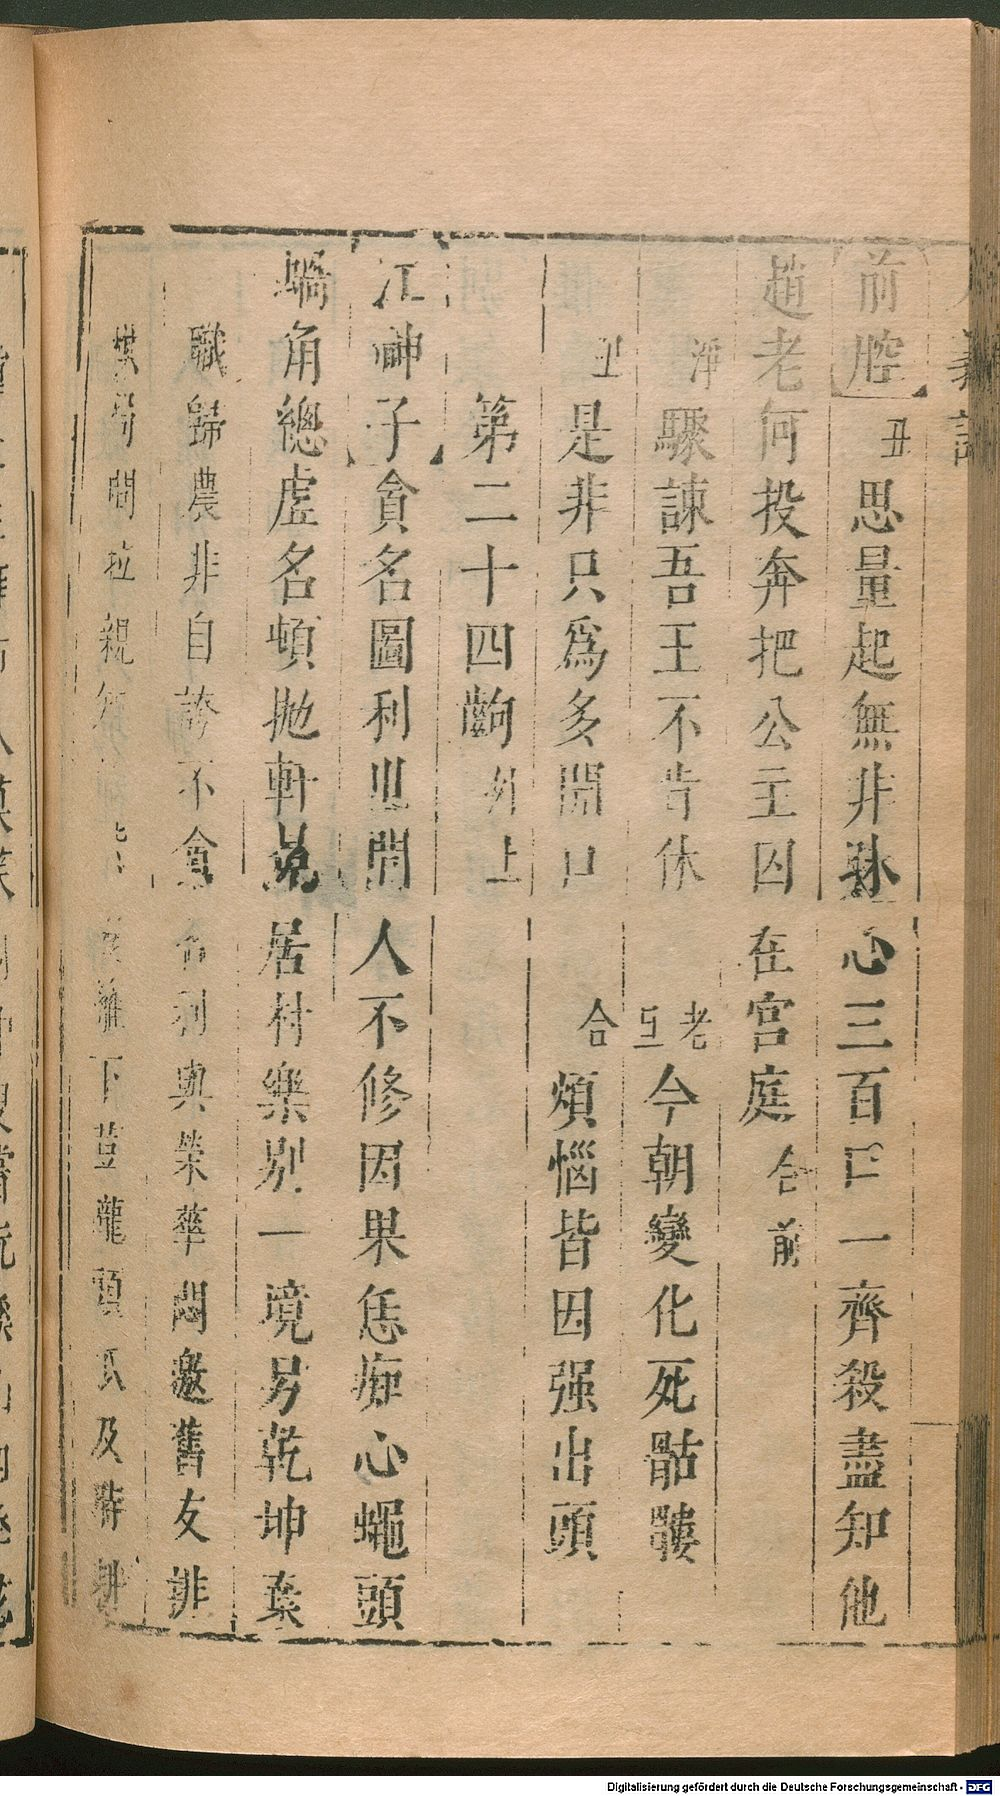 前腔 丑 思量起無非孫心三百口一齊殺盡知他
趙老何投奔把公主囚在宮庭 合前
淨 驟諫吾王不肯休 老 今朝變化死骷髏
丑 是非只爲多開口 合 煩惱皆因强出頭
第二十四齣 外上
江神子 貪名圖利世間人不修因果恁痴心蠅頭
蝸角總虛名頓拋軒冕居村樂别一境另乾坤棄
職歸農非自誇不貪名利與榮華悶邀舊友排
棋局閒拉親 下荳 及時耕
Digitalisierung gefördert durch die Deutsche Forschungsgemeinschaft - DFG